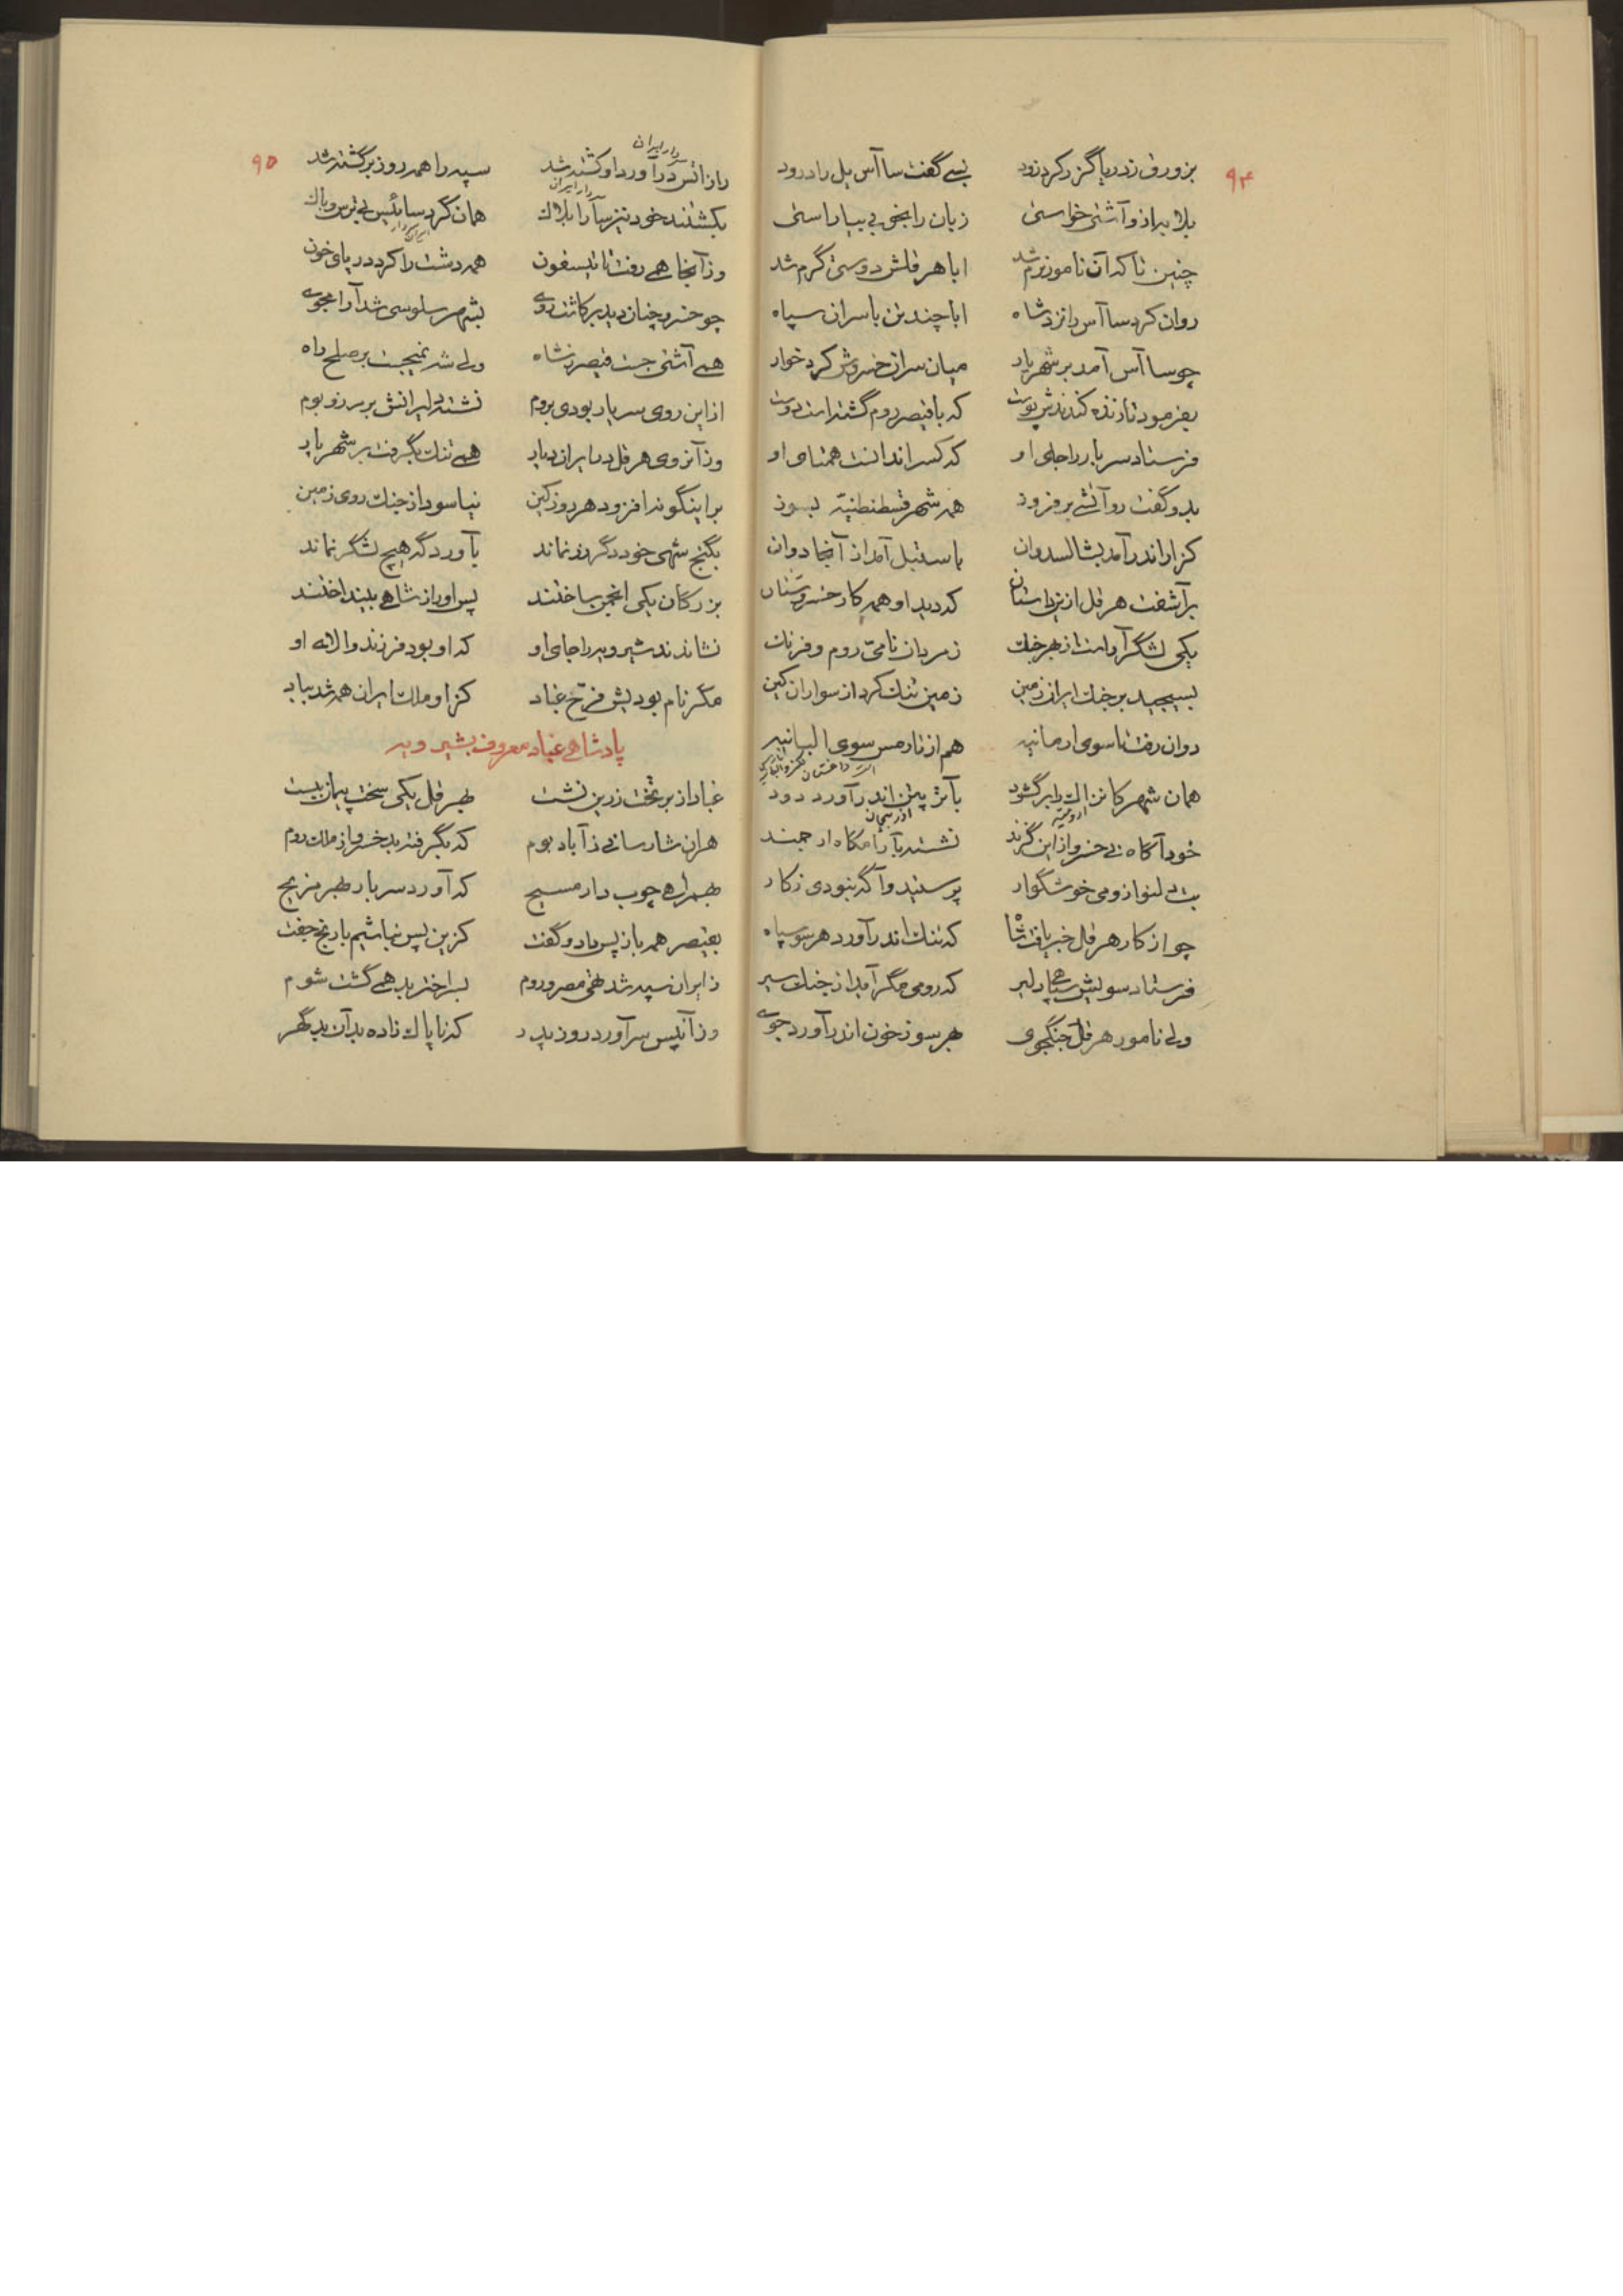 ۹۴
بزورق ز دریا گزر کرد زود بسی گفت ساآس یل را درود
بلابه از و آشتی خواستی زبان را بخوبی بیاراستی
چنین تا که آن نامور نرم شد ابا هرقلش دوستی گرم شد
روان کرد ساآس را نزد شاه ابا چند تن با سران سپاه
چو ساآس آمد بر شهریار میان سران خسروش کرد خوار
بفرمود تا زنده کندند پوست که با قیصر روم گشته است دوست
فرستاد سربار را جای او که کس را ندانست همتای او
بدو گفت رو آتشی برفروز همه شهر قسطنطنیه بسوز
کزار اندر آمد بشالسدوان باستنبل آمد از آنجا دوان
برآشفت هرقل ازین داستان که دید او همه کار خسرو چنان
یکی لشگر آراست از بهر جنگ ز مردان نامی روم و فرنگ
بسیجید بر جنگ ایران زمین زمین تنگ کرد از سواران کین
دوان رفت تا سوی ارمانیه هم از تارمس سوی البانیه
همان شهر کانزاک را برگشود بآتر پتن اندر آورد دود
ارومیه
آذربیجان
خود آگاه نی خسرو از این گزند نشسته بآرامگاه ارجمند
بت دلنواز و می خوشگوار پرستید و آگه نبودی ز کار
چو از کار هرقل خبر یافت شاه که تنگ اندر آورد هر سو سپاه
فرستاد سویش سپاهی دلیر که رومی مگر آید از جنگ سیر
ولی نامور هرقل جنگجوی بهر سو ز خون اندر آورد جوی
۹۵
سردار ایران
رازاتس درآورد او کشته شد سپه را همه روز برگشته شد
سردار ایران
بکشتند خود نیز ساآرا بلاک همان کرد سائیس بی ترس و باک
وز آنجا همی رفت تا تیسفون همه دشت را کرد دریای خون
چو خسرو چنان دید برکاشت روی بشهر سلوسی شد آرامجوی
همی آشتی جست قیصر ز شاه ولی شه نمیجست بر صلح راه
از این روی سربار بودی بروم نشسته دلیرانش بر مرز و بوم
وز آنروی هرقل در ایران دیار همی تنگ بگرفت بر شهریار
بر اینگونه افزود هر روز کین نیاسود از جنگ روی زمین
بگنج شهی خود دگر زر نماند بآوردگه هیچ لشگر نماند
بزرگان یکی انجمن ساختند پس او را ز شاهی بینداختند
نشاندند شیرویه را جای او که او بود فرزند والای او
مگر نام بودیش فرخ غباد کز او ملک ایران همه شد بباد
پادشاهی غباد معروف بشیرویه
غباد از بر تخت زرین نشست بهرقل یکی سخت پیمان ببست
هر آن شارسانی ز آباد بوم که بگرفته بد خسرو از ملک روم
بهمراهی چوب دار مسیح که آورد سربار بهر مزیح
بقیصر همه باز پس داد و گفت کزین پس نباشیم با رنج جفت
ز ایران سپه شد تهی مصر و روم بسا اختر بد همی گشت شوم
وز آنپس سرآورد روز پدر که ناپاک زاده بد آن بدگهر